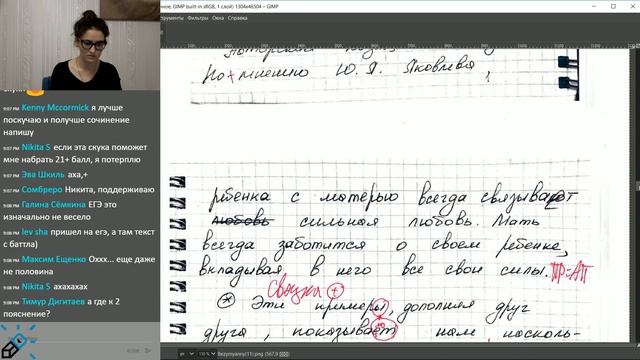 нное, GIMP built-in sRGB, 1 слой) 1304x46504 – GIMP
Фильтры Окна Справка
По + мнению Ю. Я. Яковлева,
9:07 PM Kenny Mccormick я лучше
поскучаю и получше сочинение
напишу
9:07 PM Nikita S если эта скука поможет
мне набрать 21+ балл, я потерплю
9:07 PM Эва Шкиль аха,+
9:07 PM Сомбреро Никита, поддерживаю
9:08 PM Галина Сёмкина ЕГЭ это
изначально не весело
9:08 PM lev sha пришел на егэ, а там текст
с баттла)
9:08 PM Максим Ещенко Оххх... еще даже
не половина
9:08 PM Nikita S ахахахах
9:08 PM Тимур Дигитаев а где к 2
пояснение?
ребенка с матерью всегда связывает
любовь сильная любовь. Мать
всегда заботится о своем ребенке,
вкладывая в него все свои силы. ПР=АП
Связка +
Эти примеры, дополняя друг
друга, показывает нам, насколь-
110 %
Bezymyanny(11).png (567,9